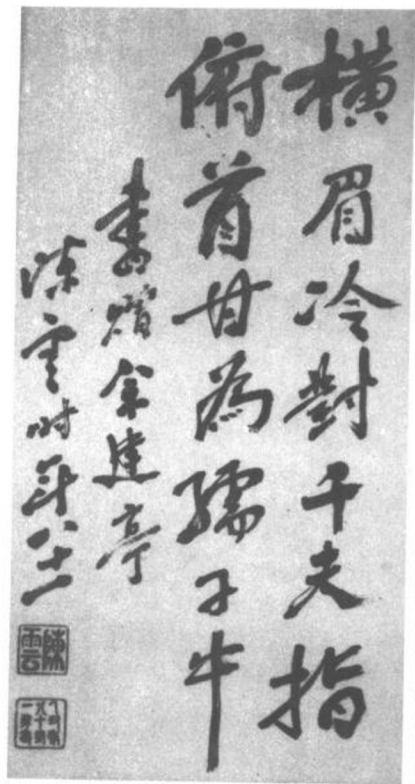 橫眉冷對千夫指
俯首甘為孺子牛
書贈余建亭
陳雲时年八十一
陳雲